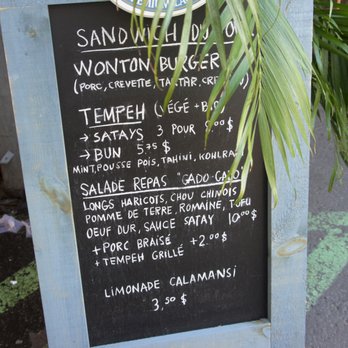 SANDWICH DU
WONTON BURGER
(PORC, CREVETTE, TARTAR, CRESSON)
TEMPEH (VÉGÉ + BIO)
→ SATAYS 3 POUR 8.00 $
→ BUN 5.75 $
MINT, POUSSE POIS, TAHINI, KOHLRABI
SALADE REPAS "GADO-GADO"
LONGS HARICOTS, CHOU CHINOIS
POMME DE TERRE, ROMAINE, TOFU
OEUF DUR, SAUCE SATAY 10.00 $
+ PORC BRAISÉ +2.00 $
+ TEMPEH GRILLÉ
LIMONADE CALAMANSI
3,50 $